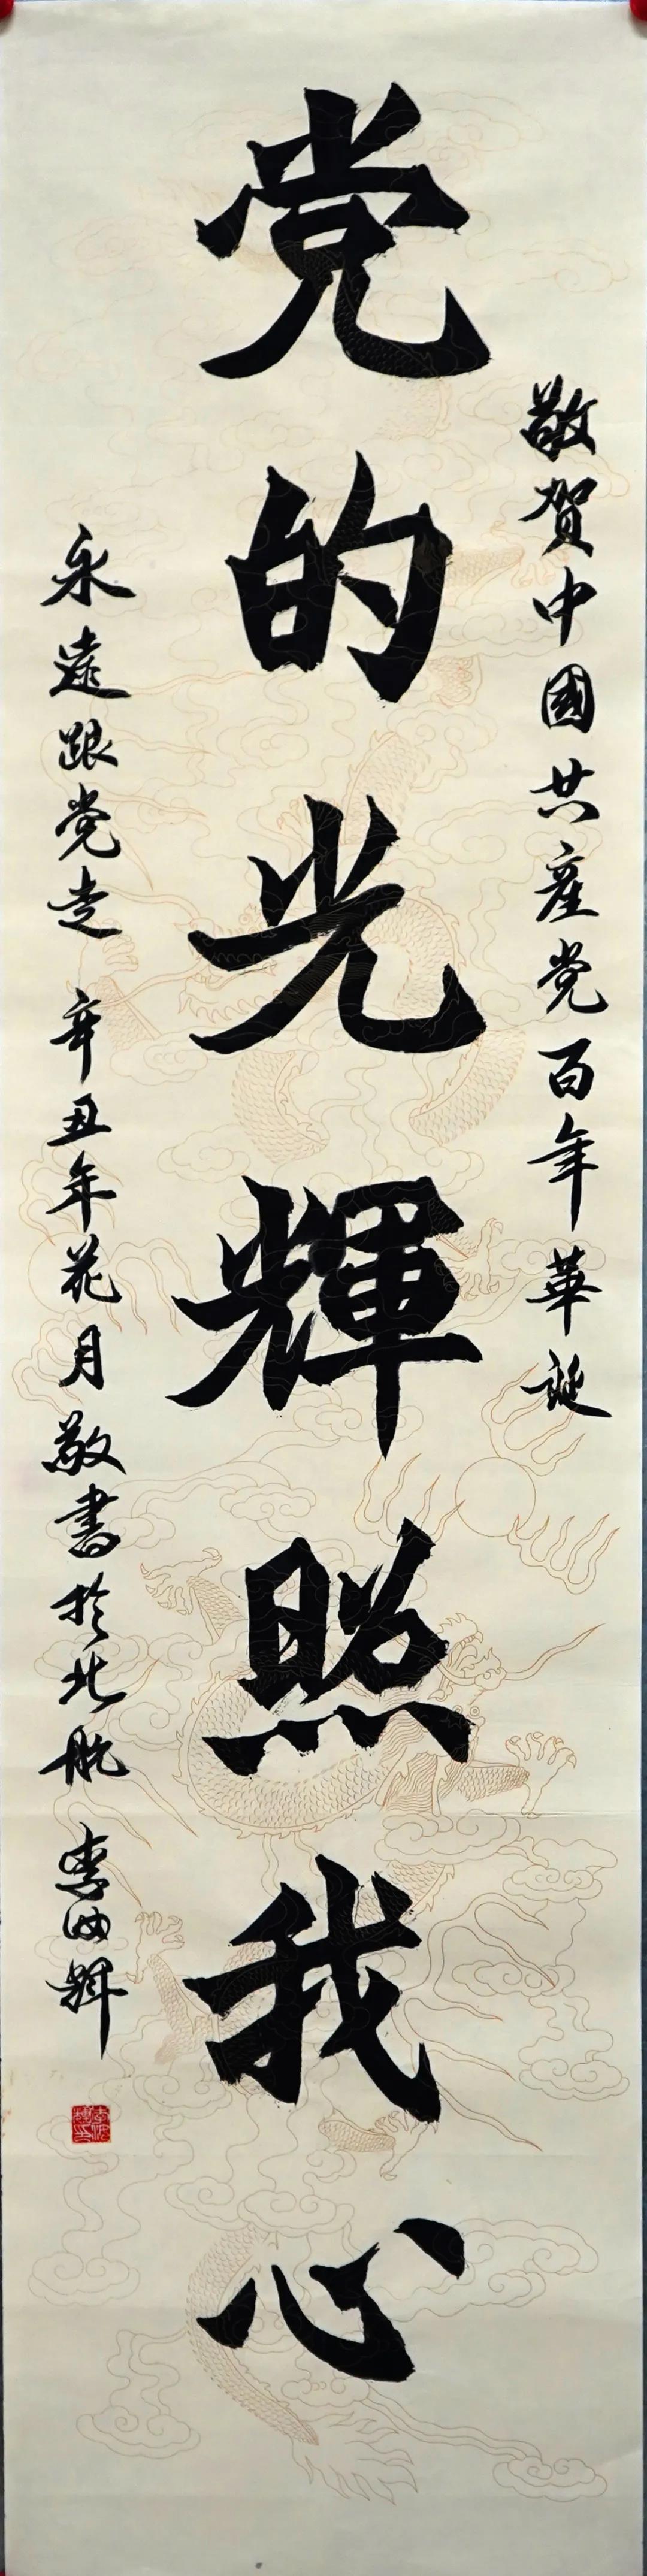 敬賀中國共產党百年華誕
党的光輝照我心
永遠跟党走 辛丑年花月敬書於北航 李